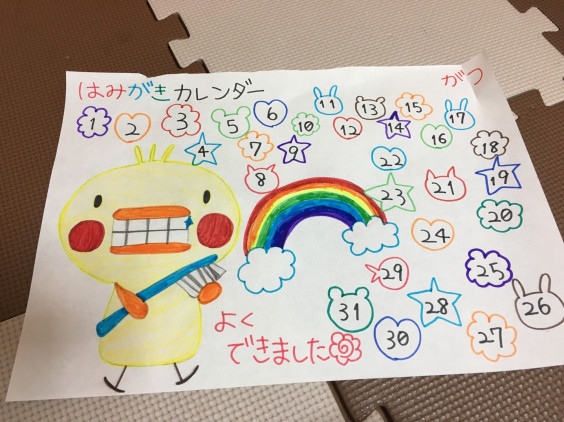 はみがきカレンダー
がつ
1
2
3
4
5
6
7
8
9
10
11
12
13
14
15
16
17
18
19
20
21
22
23
24
25
26
27
28
29
30
31
よく
できました